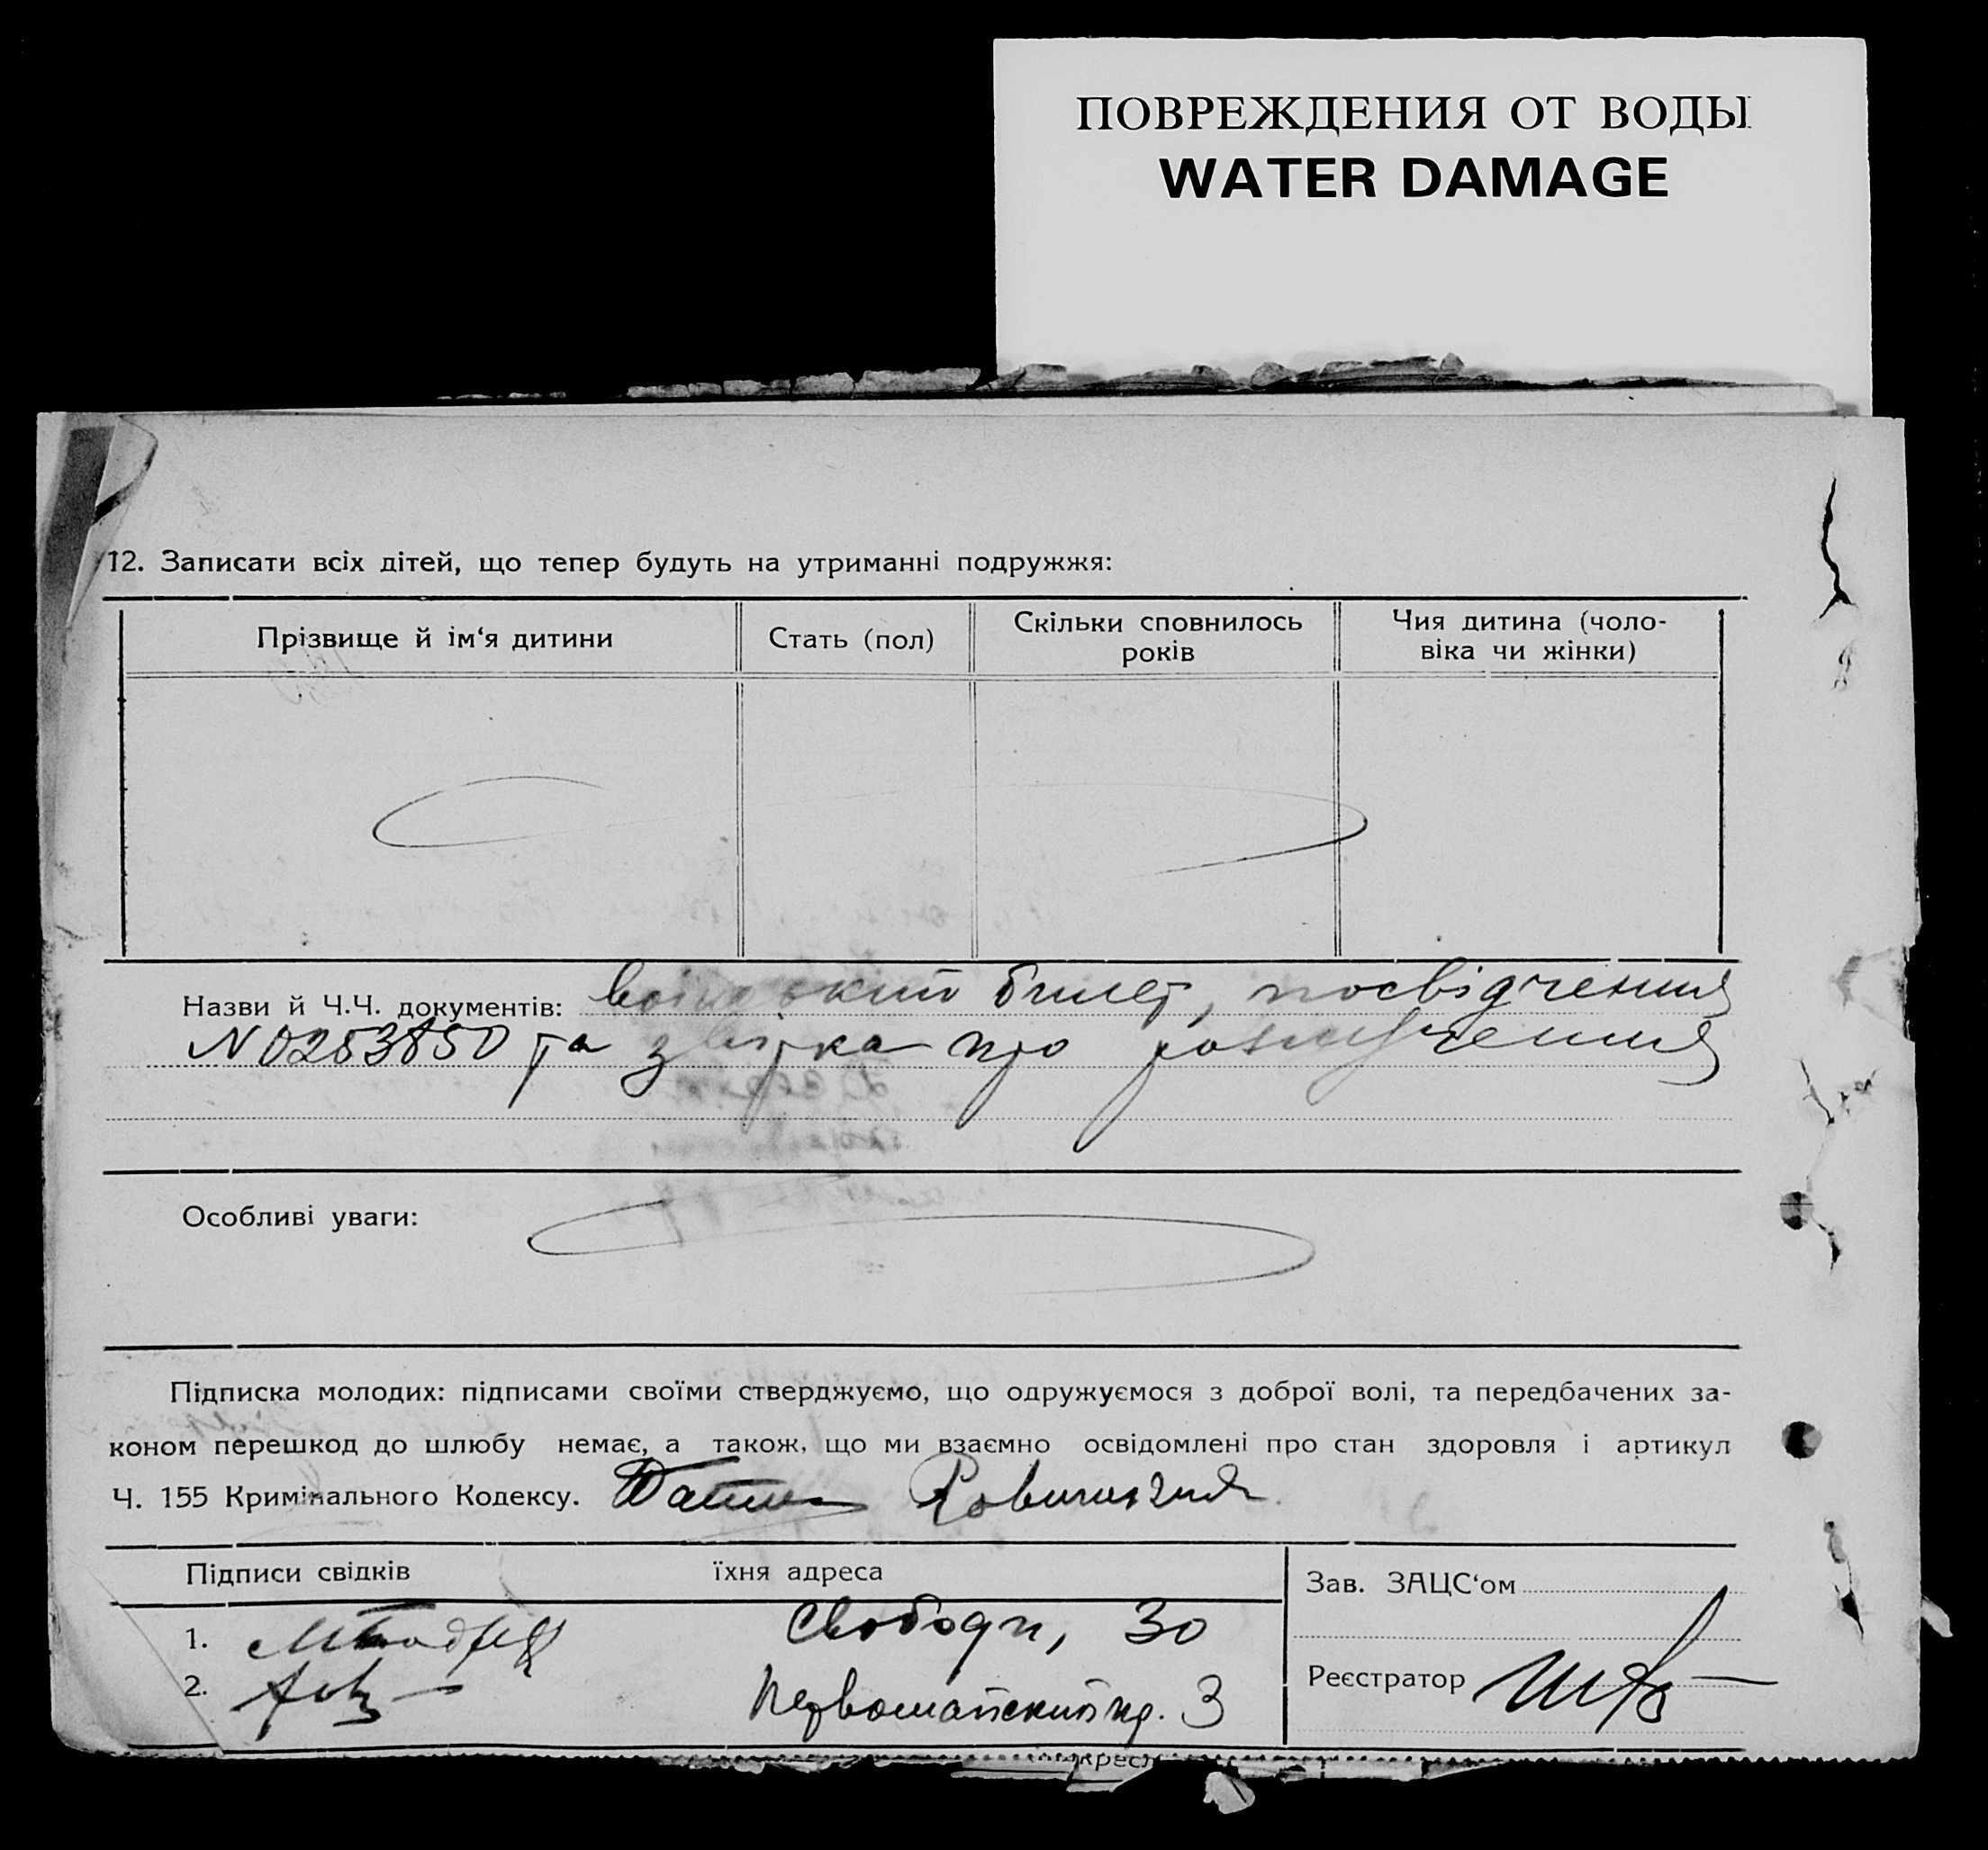 ПОВРЕЖДЕНИЯ ОТ ВОДЫ
WATER DAMAGE
12. Записати всіх дітей, що тепер будуть на утриманні подружжя:
Прізвище й ім‘я дитини
Стать (пол)
Скільки сповнилось
років
Чия дитина (чоло-
віка чи жінки)
Назви й Ч.Ч. документів: військовий билет, посвідчення
N 0253850 та звістка про розлучення
Особливі уваги:
Підписка молодих: підписами своїми стверджуємо, що одружуємося з доброї волі, та передбачених за-
коном перешкод до шлюбу немає, а також, що ми взаємно освідомлені про стан здоровля і артикул
Ч. 155 Кримінального Кодексу.
Підписи свідків їхня адреса
1. Свободи, 30
2. Первомайский пр. 3
Зав. ЗАЦС‘ом
Реєстратор